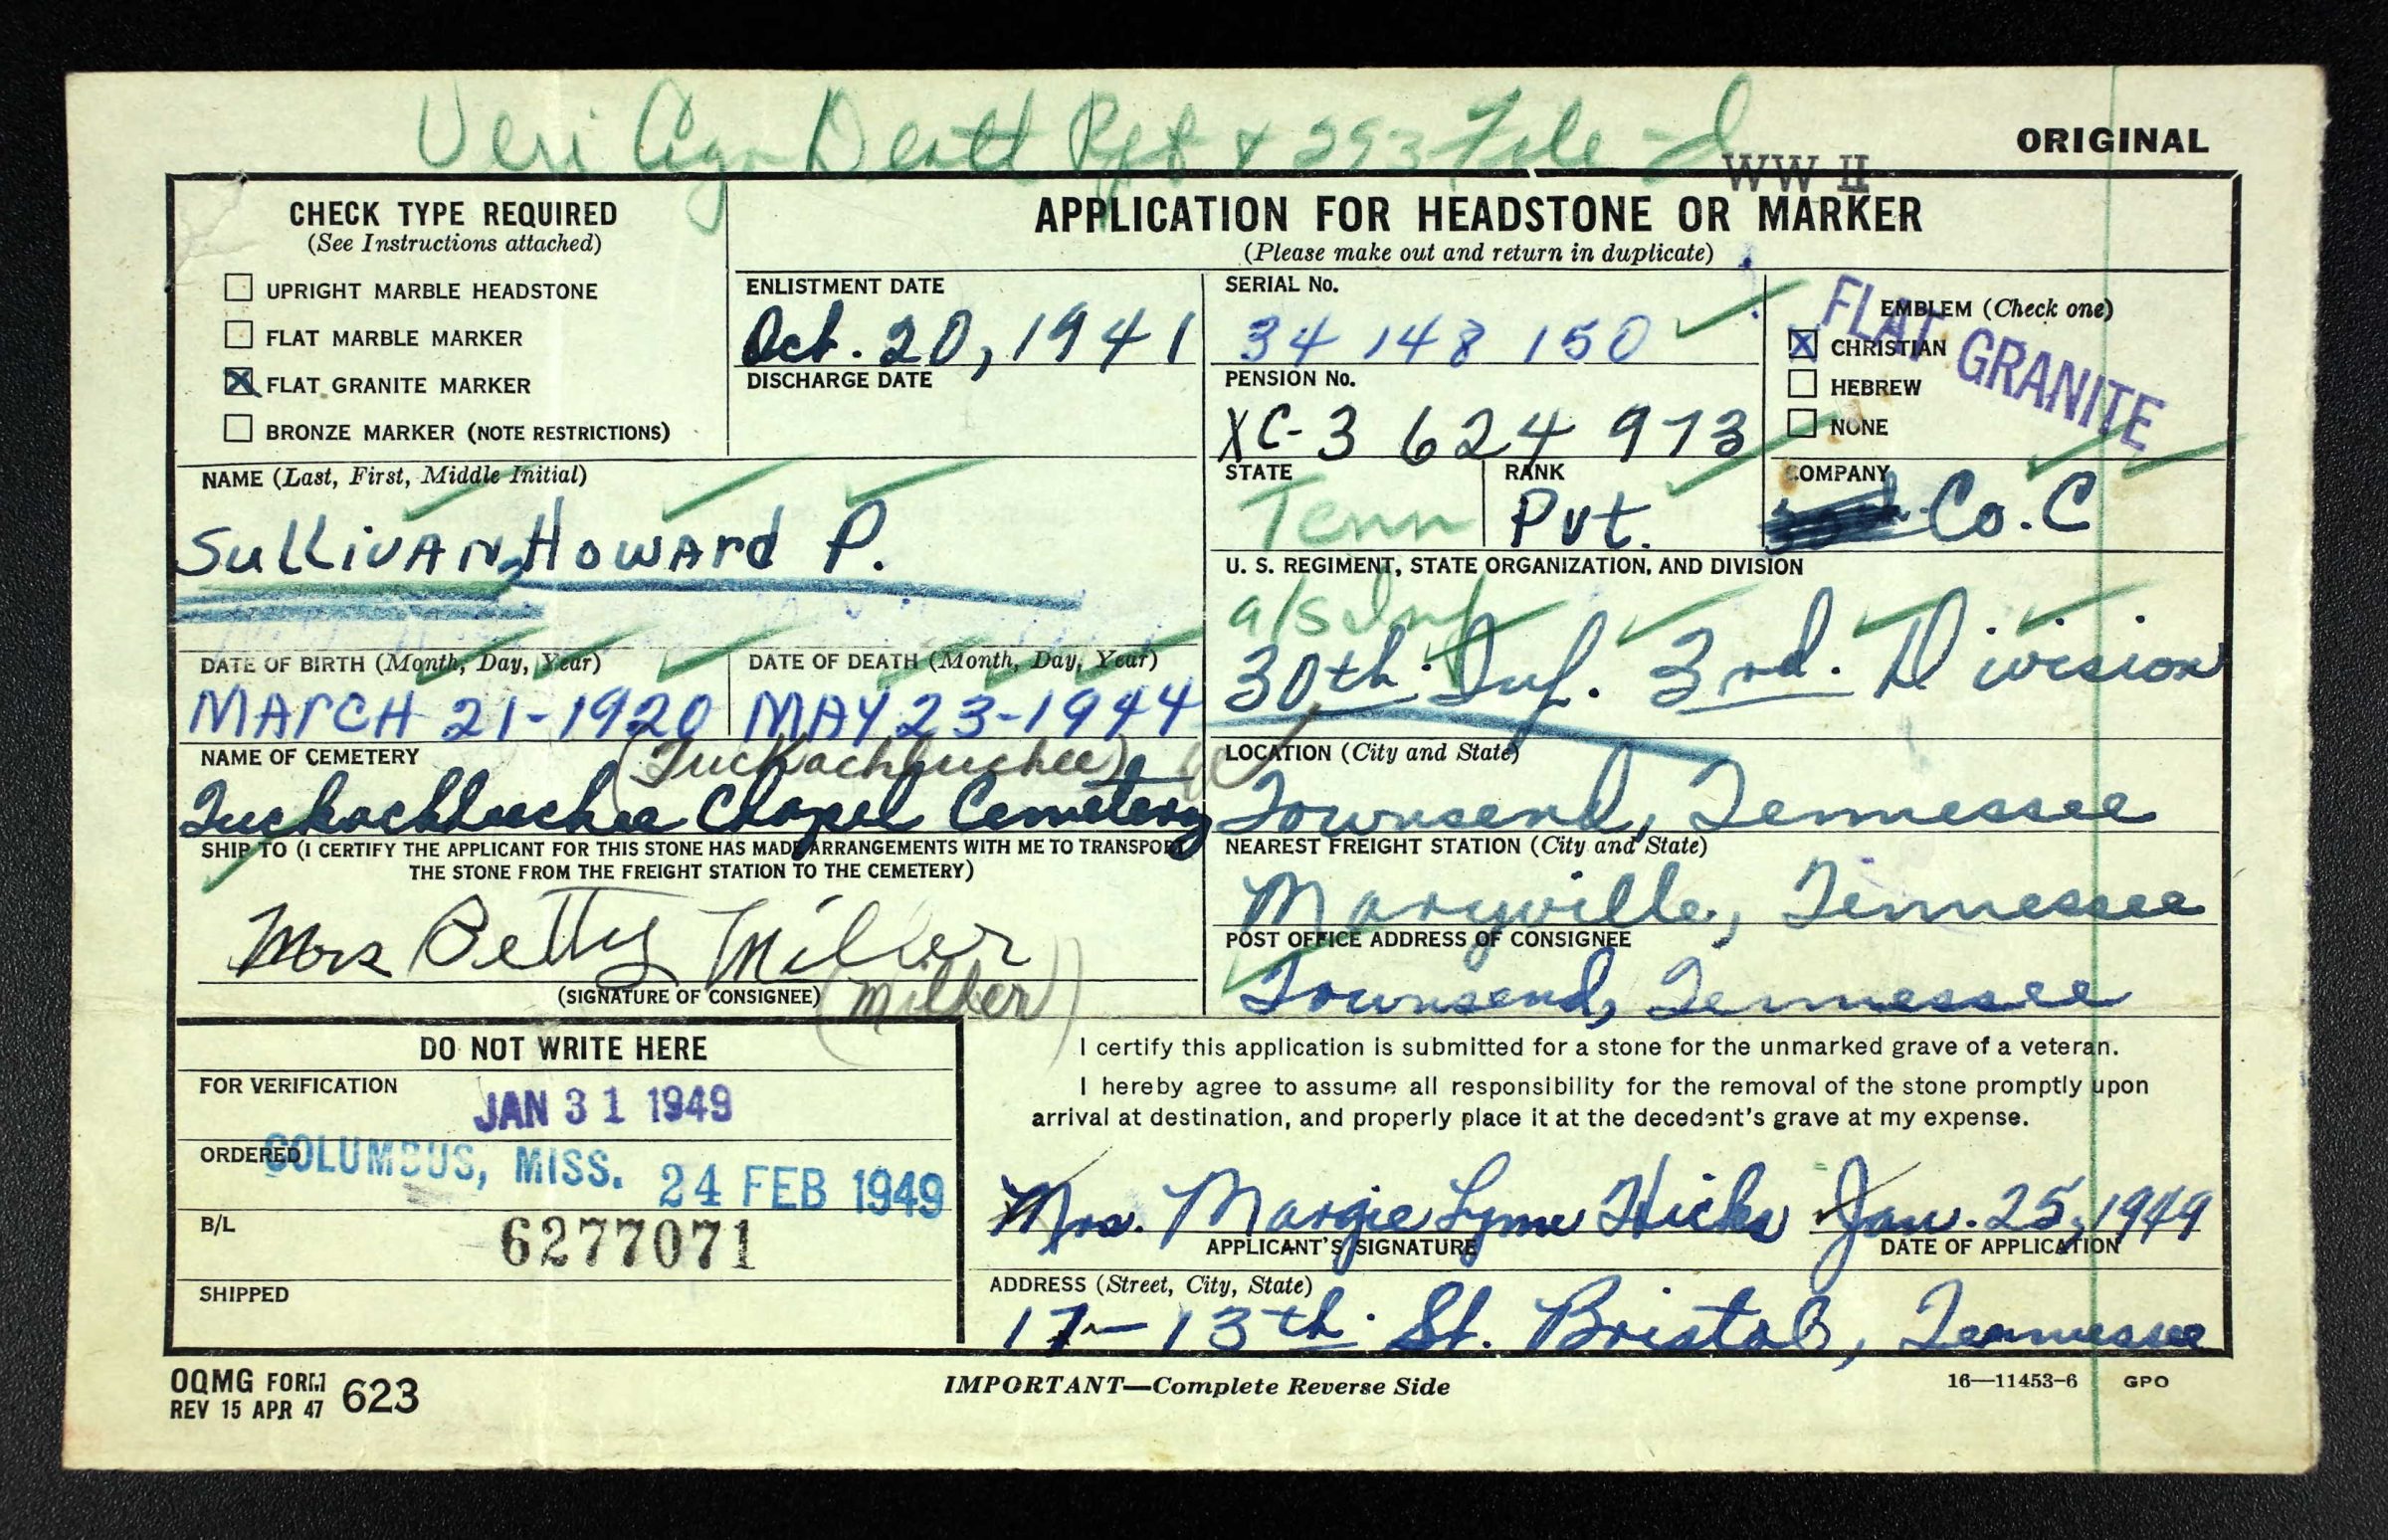 Veri Death Rpt & 293 File
ORIGINAL
WW II
CHECK TYPE REQUIRED
(See Instructions attached)
UPRIGHT MARBLE HEADSTONE
FLAT MARBLE MARKER
X FLAT GRANITE MARKER
BRONZE MARKER (NOTE RESTRICTIONS)
APPLICATION FOR HEADSTONE OR MARKER
(Please make out and return in duplicate)
ENLISTMENT DATE
Oct. 20, 1941
DISCHARGE DATE
SERIAL No.
34 148 150
PENSION No.
XC-3 624 973
EMBLEM (Check one)
X CHRISTIAN
HEBREW
NONE
FLAT GRANITE
NAME (Last, First, Middle Initial)
SulliVAN, HowArd P.
STATE
Tenn
RANK
Pvt.
COMPANY
Co. C
U. S. REGIMENT, STATE ORGANIZATION, AND DIVISION
a/s Inf
30th Inf. 3rd. Division
DATE OF BIRTH (Month, Day, Year)
MArCH 21-1920
DATE OF DEATH (Month, Day, Year)
MAY 23-1944
NAME OF CEMETERY
(Tuckachbuchee)
Tuckachbuchee Chapel Cemetery
LOCATION (City and State)
Townsend, Tennessee
SHIP TO (I CERTIFY THE APPLICANT FOR THIS STONE HAS MADE ARRANGEMENTS WITH ME TO TRANSPORT
THE STONE FROM THE FREIGHT STATION TO THE CEMETERY)
Mrs Betty Miller
(SIGNATURE OF CONSIGNEE)
(Miller)
NEAREST FREIGHT STATION (City and State)
Maryville, Tennessee
POST OFFICE ADDRESS OF CONSIGNEE
Townsend, Tennessee
DO NOT WRITE HERE
FOR VERIFICATION
JAN 31 1949
ORDERED
COLUMBUS, MISS. 24 FEB 1949
B/L
6277071
SHIPPED
I certify this application is submitted for a stone for the unmarked grave of a veteran.
I hereby agree to assume all responsibility for the removal of the stone promptly upon
arrival at destination, and properly place it at the decedent's grave at my expense.
Mrs. Margie Lynn Hicks Jan. 25, 1949
APPLICANT'S SIGNATURE
DATE OF APPLICATION
ADDRESS (Street, City, State)
17-13th St. Bristol, Tennessee
OQMG FORM 623
REV 15 APR 47
IMPORTANT—Complete Reverse Side
16—11453-6 GPO